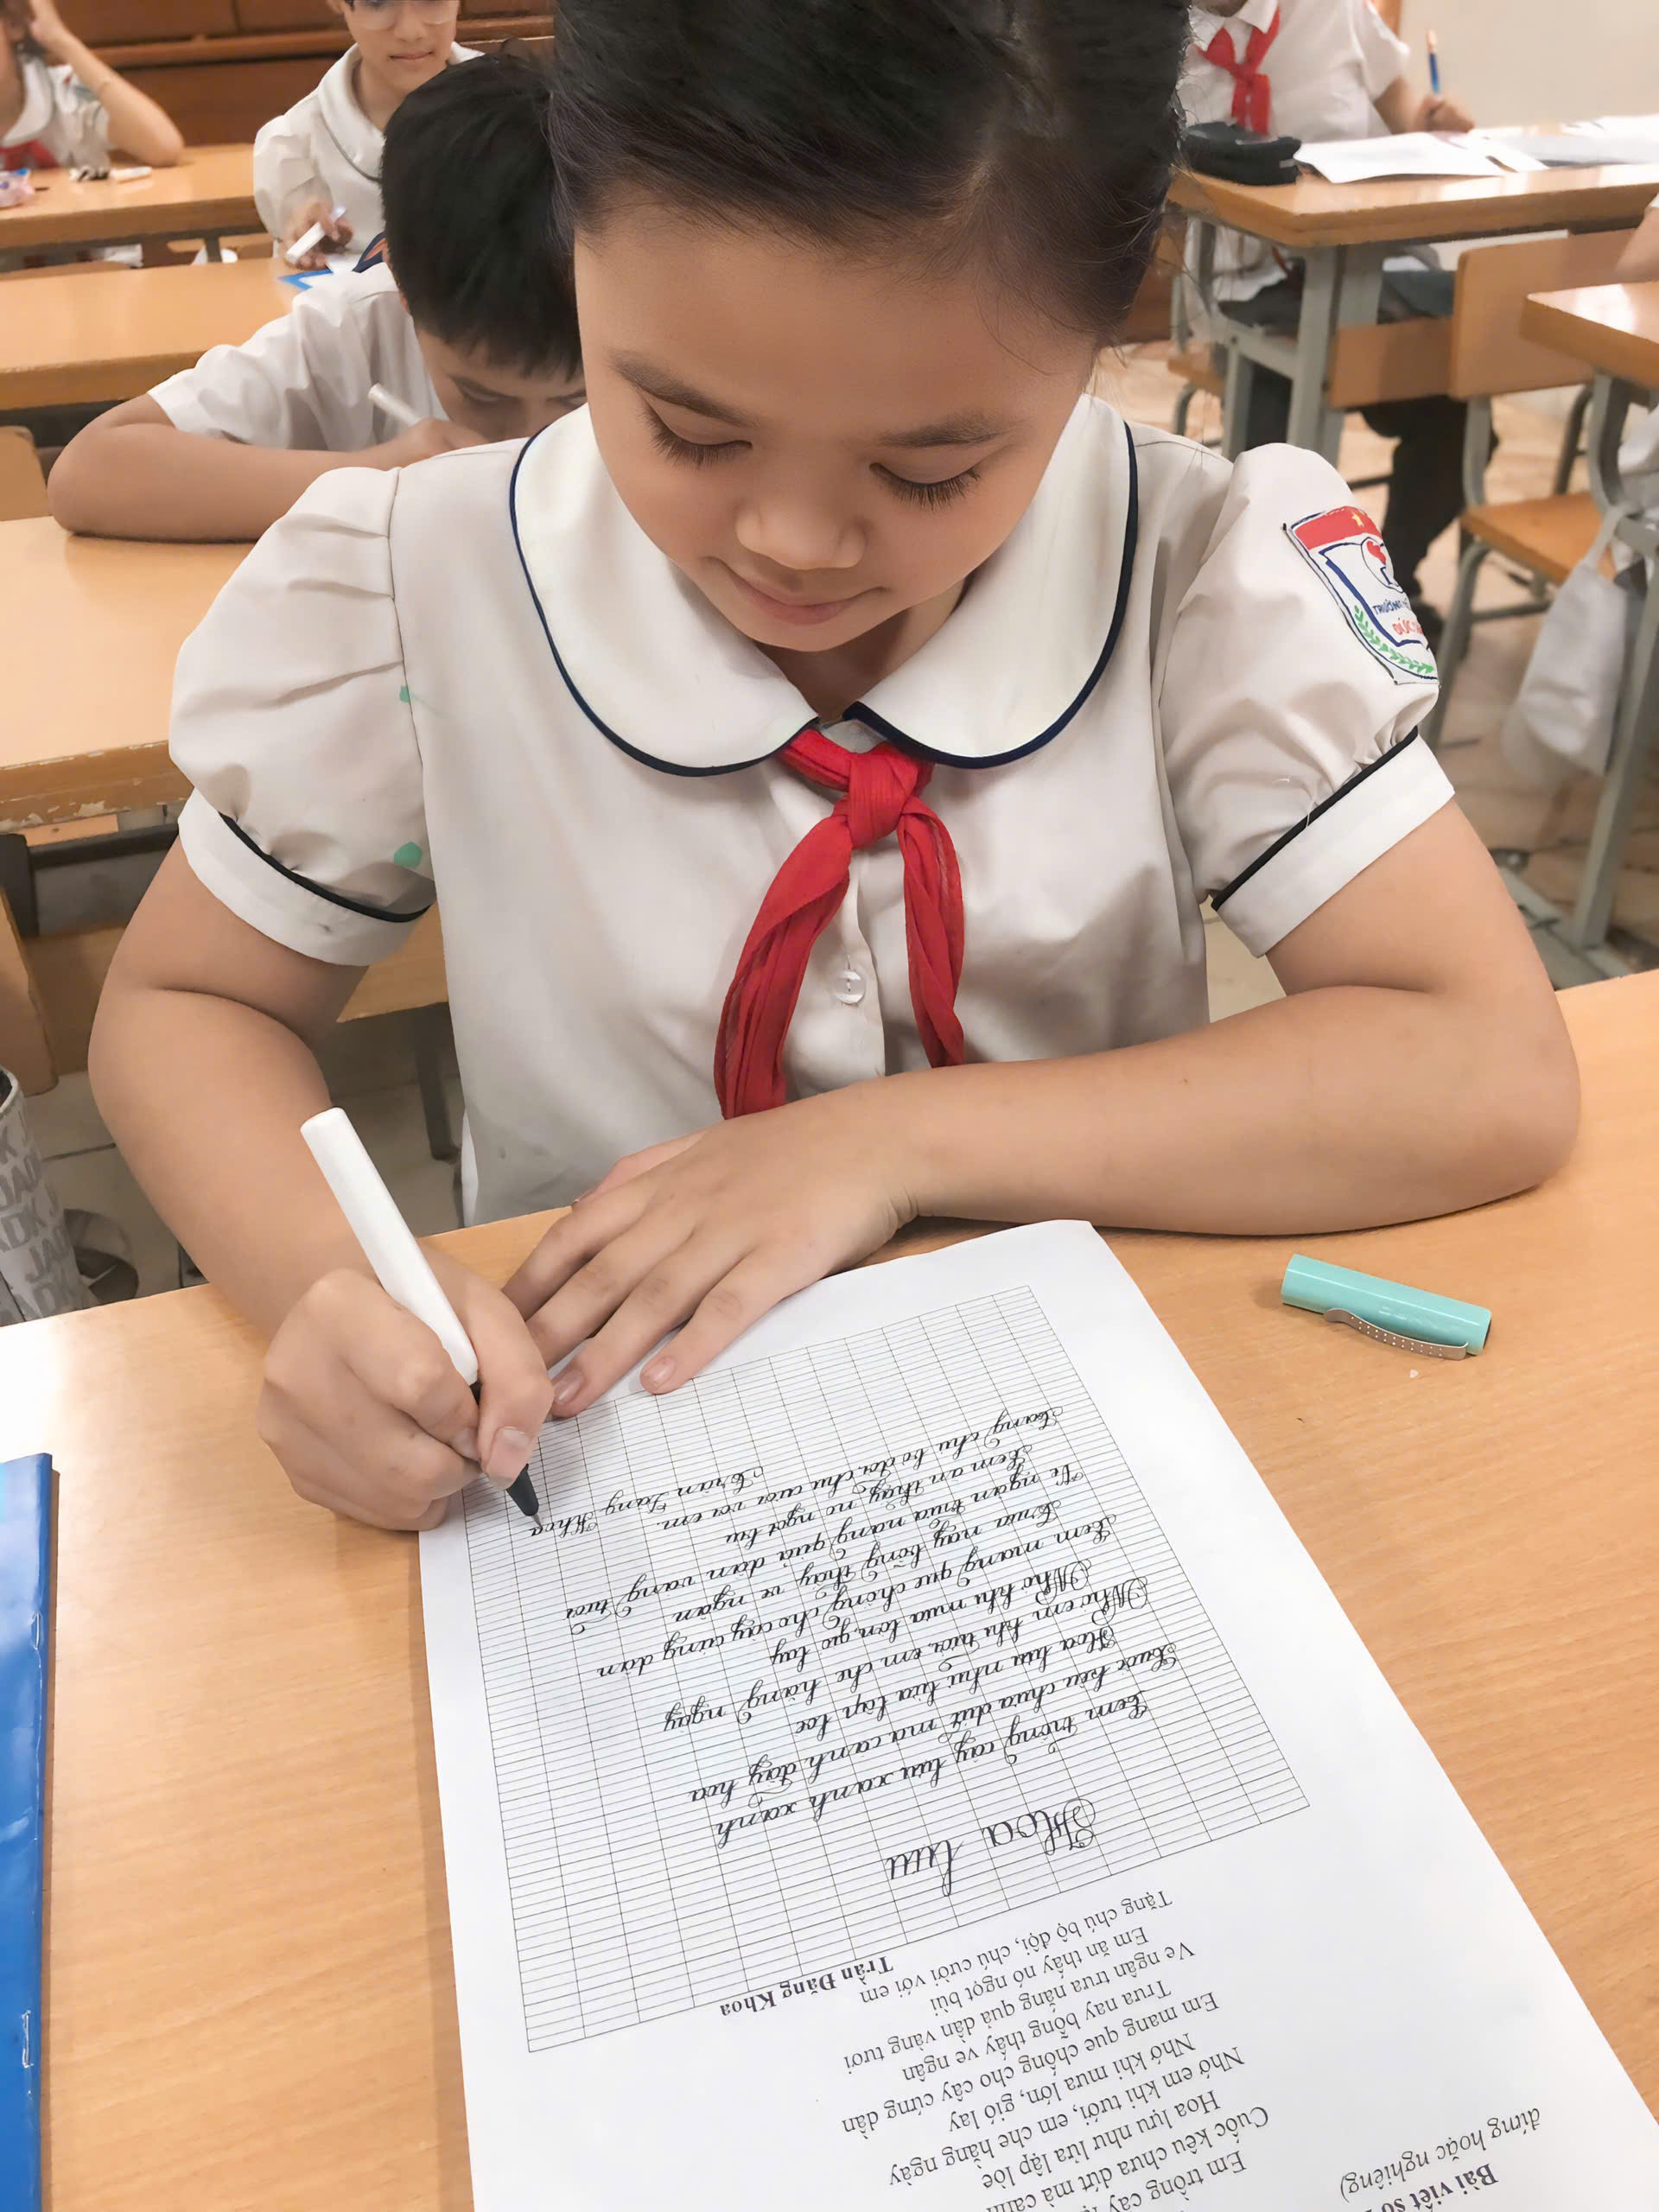 TRƯỜNG
Bài viết số
đứng hoặc nghiêng)
Em trồng cây
Cuốc kêu chưa dứt mà cành
Hoa lựu như lửa lập lòe
Nhớ em khi tưới, em che hằng ngày
Nhớ khi mưa lớn, gió lay
Em mang que chống cho cây cứng dần
Trưa nay bỗng thấy ve ngân
Ve ngân trưa nắng quả dần vàng tươi
Em ăn thấy nó ngọt bùi
Tặng chú bộ đội, chú cười với em
Trần Đăng Khoa
Hoa lựu
Em trồng cây lựu xanh xanh
Cuốc kêu chưa dứt mà cành đầy hoa
Hoa lựu như lửa lập loe
Nhớ em khi tưới, em che hàng ngày
Nhớ khi mưa lớn, gió lay
Em mang que chống cho cây cứng dần
Trưa nay bỗng thấy ve ngân
Ve ngân trưa nắng quả dần vàng tươi
Em ăn thấy nó ngọt bu
Tang chu bo doi, chu cuoi voi em.
Tran Dang Khoa